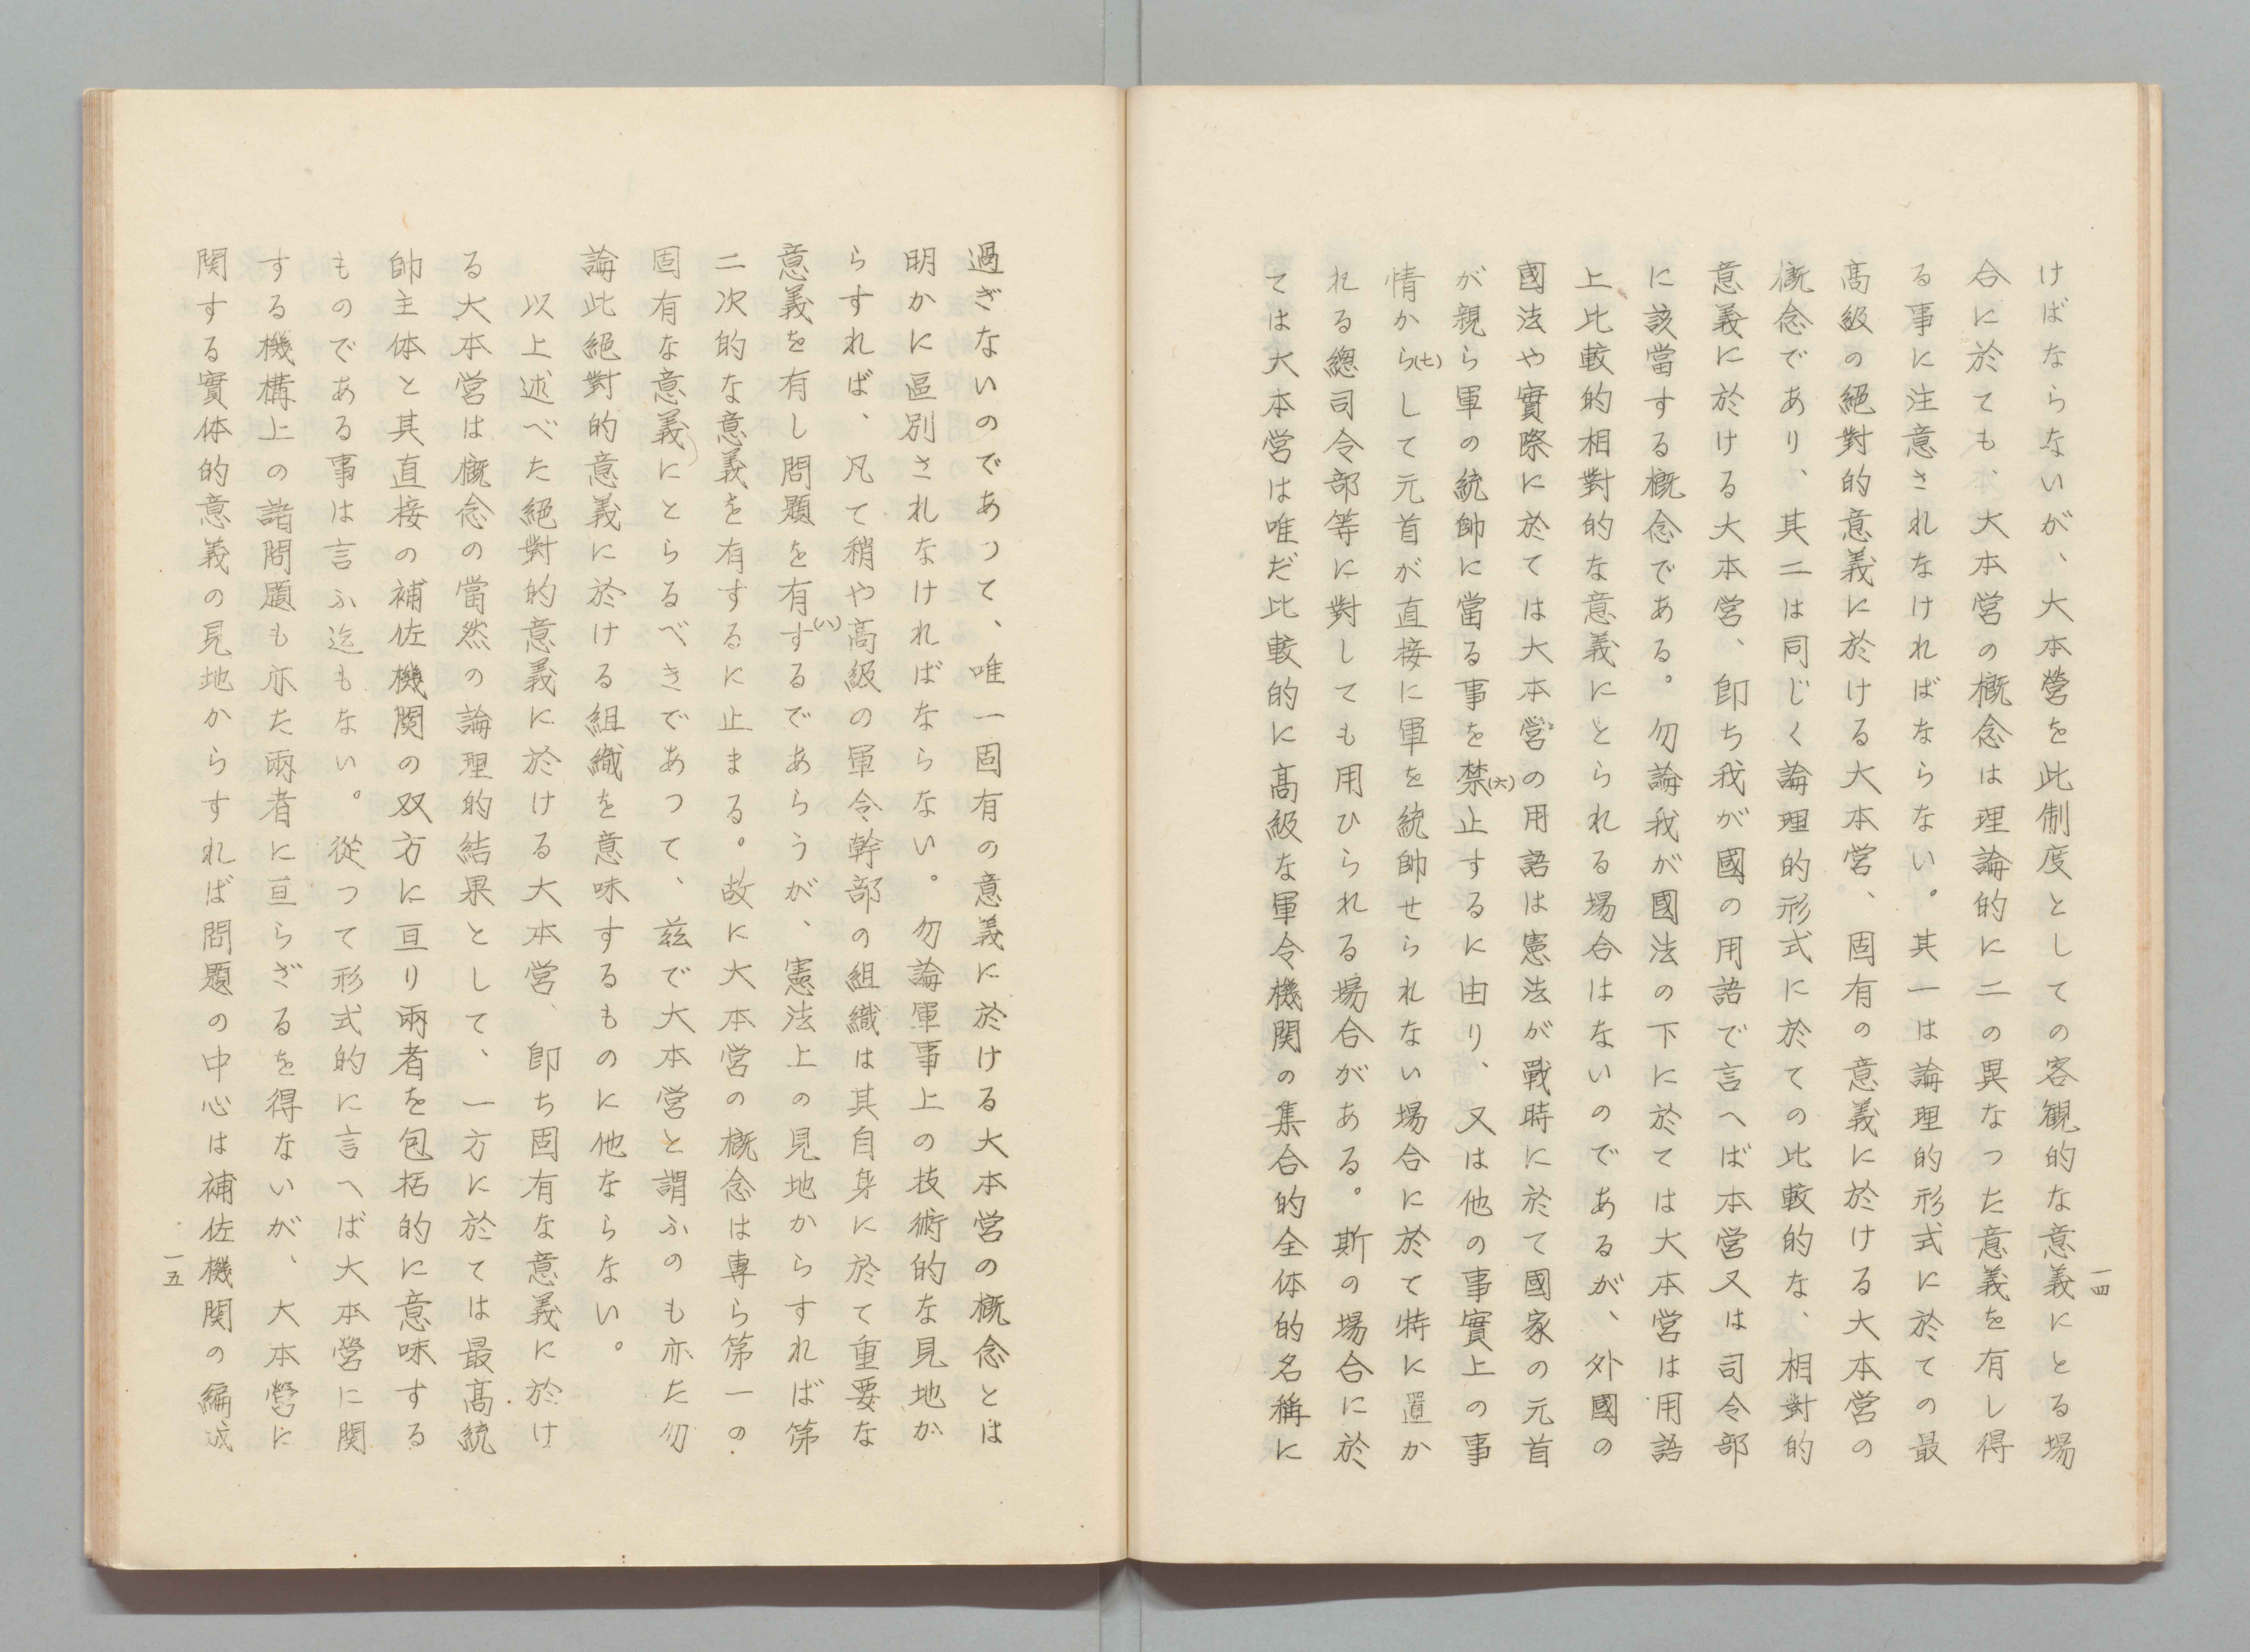 けばならないが、大本營を此制度としての客観的な意義にとる場
合に於ても、大本営の概念は理論的に二の異なつた意義を有し得
る事に注意されなければならない。其一は論理的形式に於ての最
高級の絕對的意義に於ける大本営、固有の意義に於ける大本営の
概念であり、其二は同じく論理的形式に於ての比較的な、相對的
意義に於ける大本営、卽ち我が國の用語で言へば本営又は司令部
に該當する概念である。勿論我が國法の下に於ては大本営は用語
上比較的相對的な意義にとられる場合はないのであるが、外國の
國法や實際に於ては大本営の用語は憲法が戰時に於て國家の元首
が親ら軍の統帥に當る事を禁止(六)するに由り、又は他の事實上の事
情から(七)して元首が直接に軍を統帥せられない場合に於て特に置か
れる總司令部等に對しても用ひられる場合がある。斯の場合に於
ては大本営は唯だ比較的に高級な軍令機関の集合的全体的名稱に
一四
過ぎないのであつて、唯一固有の意義に於ける大本営の概念とは
明かに區別されなければならない。勿論軍事上の技術的な見地か
らすれば、凡て稍や高級の軍令幹部の組織は其自身に於て重要な
意義を有し問題を有す(八)るであらうが、憲法上の見地からすれば第
二次的な意義を有するに止まる。故に大本営の概念は専ら第一の
固有な意義にとらるべきであつて、茲で大本営と謂ふのも亦た勿
論此絕對的意義に於ける組織を意味するものに他ならない。
以上述べた絕對的意義に於ける大本営、卽ち固有な意義に於け
る大本営は概念の當然の論理的結果として、一方に於ては最高統
帥主体と其直接の補佐機関の双方に亘り兩者を包括的に意味する
ものである事は言ふ迄もない。從つて形式的に言へば大本營に関
する機構上の諸問題も亦た兩者に亘らざるを得ないが、大本營に
関する實体的意義の見地からすれば問題の中心は補佐機関の編成
一五